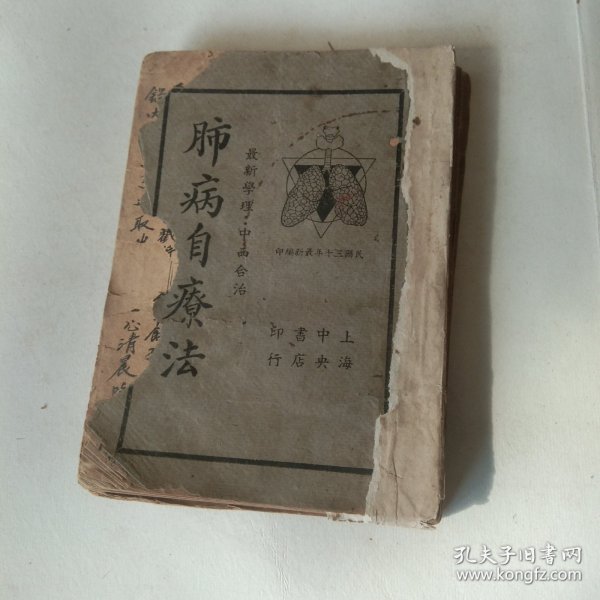 民國三十年最新編印
上海
中央
書店
印行
最新學理·中西合治
肺病自療法
取山
一心清晨
孔夫子旧书网
www.kongfz.com